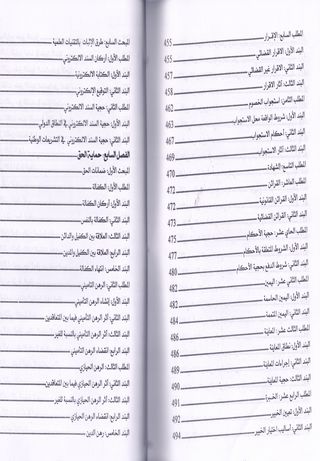 المطلب السابع: الإقرار 455
البند الأول: الاقرار القضائي 455
البند الثاني: الاقرار غير القضائي 457
البند الثالث: آثار الاقرار 458
المطلب الثامن: استجواب الخصوم 462
البند الأول: شروط الواقعة محل الاستجواب 463
البند الثاني: أحكام الاستجواب 467
البند الثالث: آثار الاستجواب 469
المطلب التاسع: الشهادة 470
المطلب العاشر: القرائن 472
البند الأول: القرائن القانونية 472
البند الثاني: القرائن القضائية 473
المطلب الحادي عشر: حجية الأحكام 475
البند الأول: الشروط المتعلقة بالأحكام 477
البند الثاني: شروط الدفع بحجية الأحكام 480
المطلب الثاني عشر: اليمين 482
البند الأول: اليمين الحاسمة 482
البند الثاني: اليمين المتممة 484
المطلب الثالث عشر: المعاينة 486
البند الأول: نطاق المعاينة 486
البند الثاني: إجراءات المعاينة 489
البند الثالث: حجية المعاينة 490
المطلب الرابع عشر: الخبرة 491
البند الأول: تعيين الخبير 492
البند الثاني: أساليب اختيار الخبير 494
المبحث الثاني: طرق الإثبات بالتقنيات العلمية
المطلب الأول: أركان السند الالكتروني
البند الأول: الكتابة الالكترونية
البند الثاني: التوقيع الإلكتروني
المطلب الثاني: حجية السند الالكتروني
البند الأول: حجية السند الالكتروني في النطاق الدولي
البند الثاني: حجية السند الالكتروني في التشريعات الوطنية
الفصل السابع: حماية الحق
المبحث الأول: ضمانات الحق
المطلب الأول: الكفالة
البند الأول: أركان الكفالة
البند الثاني: الكفالة بالنفس
البند الثالث: العلاقة بين الكفيل والدائن
البند الرابع: العلاقة بين الكفيل والمدين
البند الخامس: انتهاء الكفالة
المطلب الثاني: الرهن التأميني
البند الأول: إنشاء الرهن التأميني
البند الثاني: أثر الرهن التأميني فيما بين المتعاقدين
البند الثالث: أثر الرهن التأميني بالنسبة للغير
البند الرابع: انقضاء الرهن التأميني
المطلب الثالث: الرهن الحيازي
البند الثاني: أثر الرهن الحيازي فيما بين المتعاقدين
البند الثالث: أثر الرهن الحيازي بالنسبة للغير
البند الرابع: انقضاء الرهن الحيازي
البند الخامس: رهن الدين